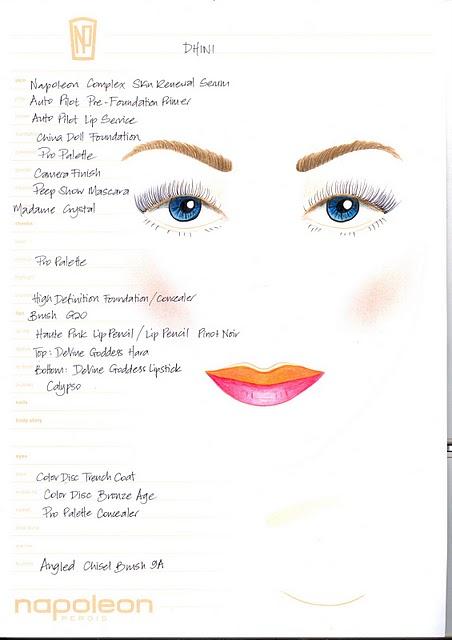 NP
DHINI
Napoleon Complex Skin Renewal Serum
Auto Pilot Pre-Foundation Primer
Auto Pilot Lip Service
China Doll Foundation
Pro Palette
Camera Finish
Peep Show Mascara
Madame Crystal
cheeks
Pro Palette
High Definition Foundation/Concealer
Brush G20
Haute Pink Lip Pencil / Lip Pencil Pinot Noir
Top: DeVine Goddess Hara
Bottom: DeVine Goddess Lipstick
Calypso
nails
body story
eyes
Color Disc Trench Coat
Color Disc Bronze Age
Pro Palette Concealer
Angled Chisel Brush 9A
napoleon
PERDIS